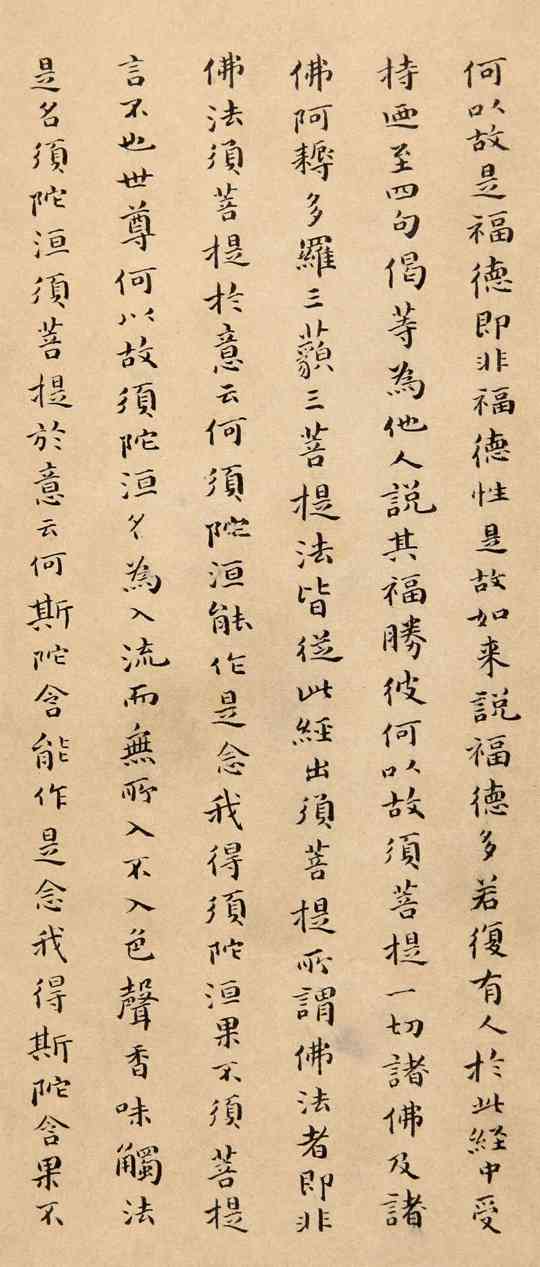 何以故是福德即非福德性是故如来説福德多若復有人於此経中受
持乃至四句偈等為他人説其福勝彼何以故須菩提一切諸佛及諸
佛阿耨多羅三藐三菩提法皆從此経出須菩提所謂佛法者即非
佛法須菩提於意云何須陀洹能作是念我得須陀洹果不須菩提
言不也世尊何以故須陀洹名為入流而無所入不入色聲香味觸法
是名須陀洹須菩提於意云何斯陀含能作是念我得斯陀含果不